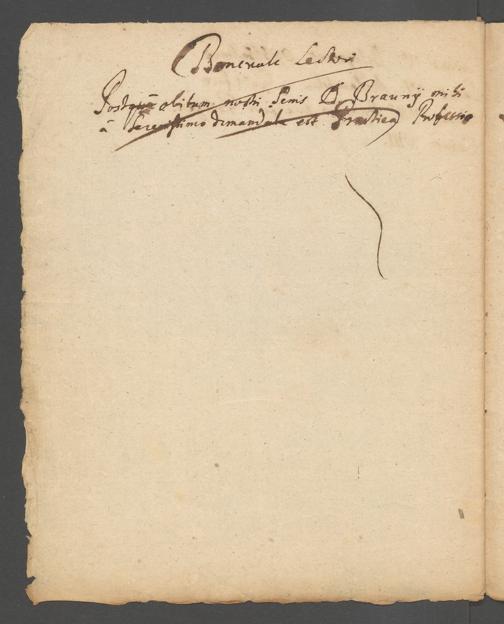 Benevole Lector
Postquam obitum nostri Senis D. Braunij mihi
à Serenissimo demandata est Practica Professio